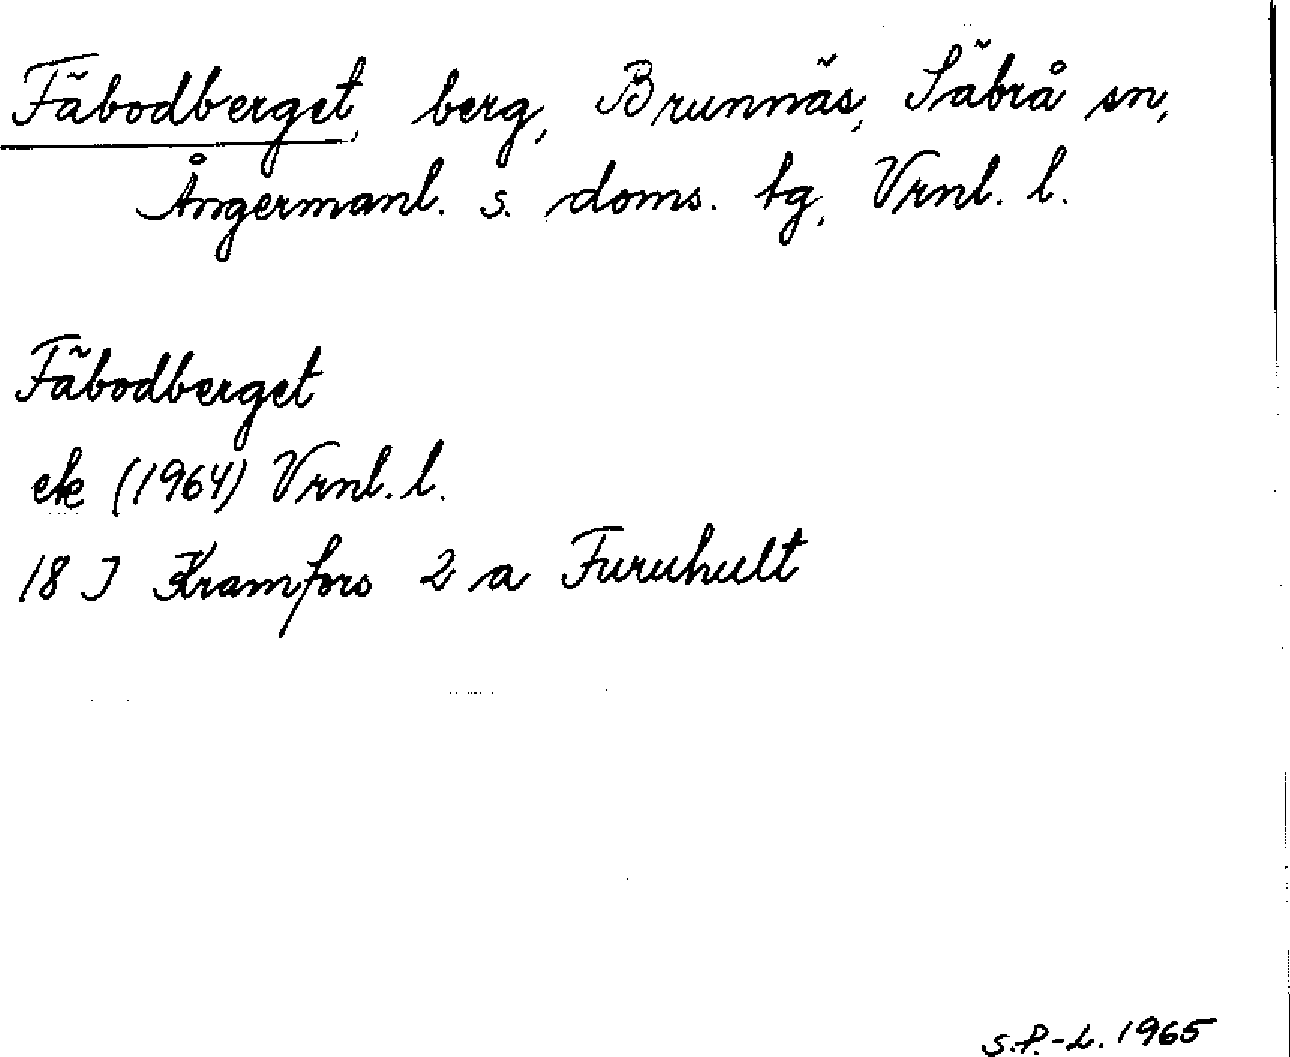 Fäbodberget, berg, Brunnäs, Säbrå sn,
Ångermanl. s. doms. tg, Vrnl. l.
Fäbodberget
ek (1964) Vrnl. l.
18 I Kramfors 2 a Furuhult
S.P.-L. 1965